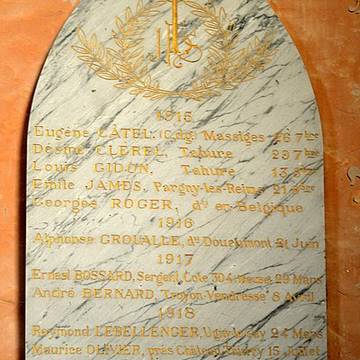 JHS
1915
Eugène CATEL, (Cdt) Massiges 26 7bre
Désiré CLEREL, Tahure 29 7bre
Louis GIDON, Tahure
Emile JAMES, Pargny-les-Reims
Georges ROGER, dt en Belgique
1916
Alphonse GROUALLE, dt Douaumont 21 Juin
1917
Ernest BOSSARD, Sergent, Cote 304 Meuse 29 Mars
André BERNARD, Troyon-Vendresse 8 Avril
1918
Raymond LEBELLENGER, 24 Mars
Maurice OLIVIER, près Château Thierry 15 Juillet